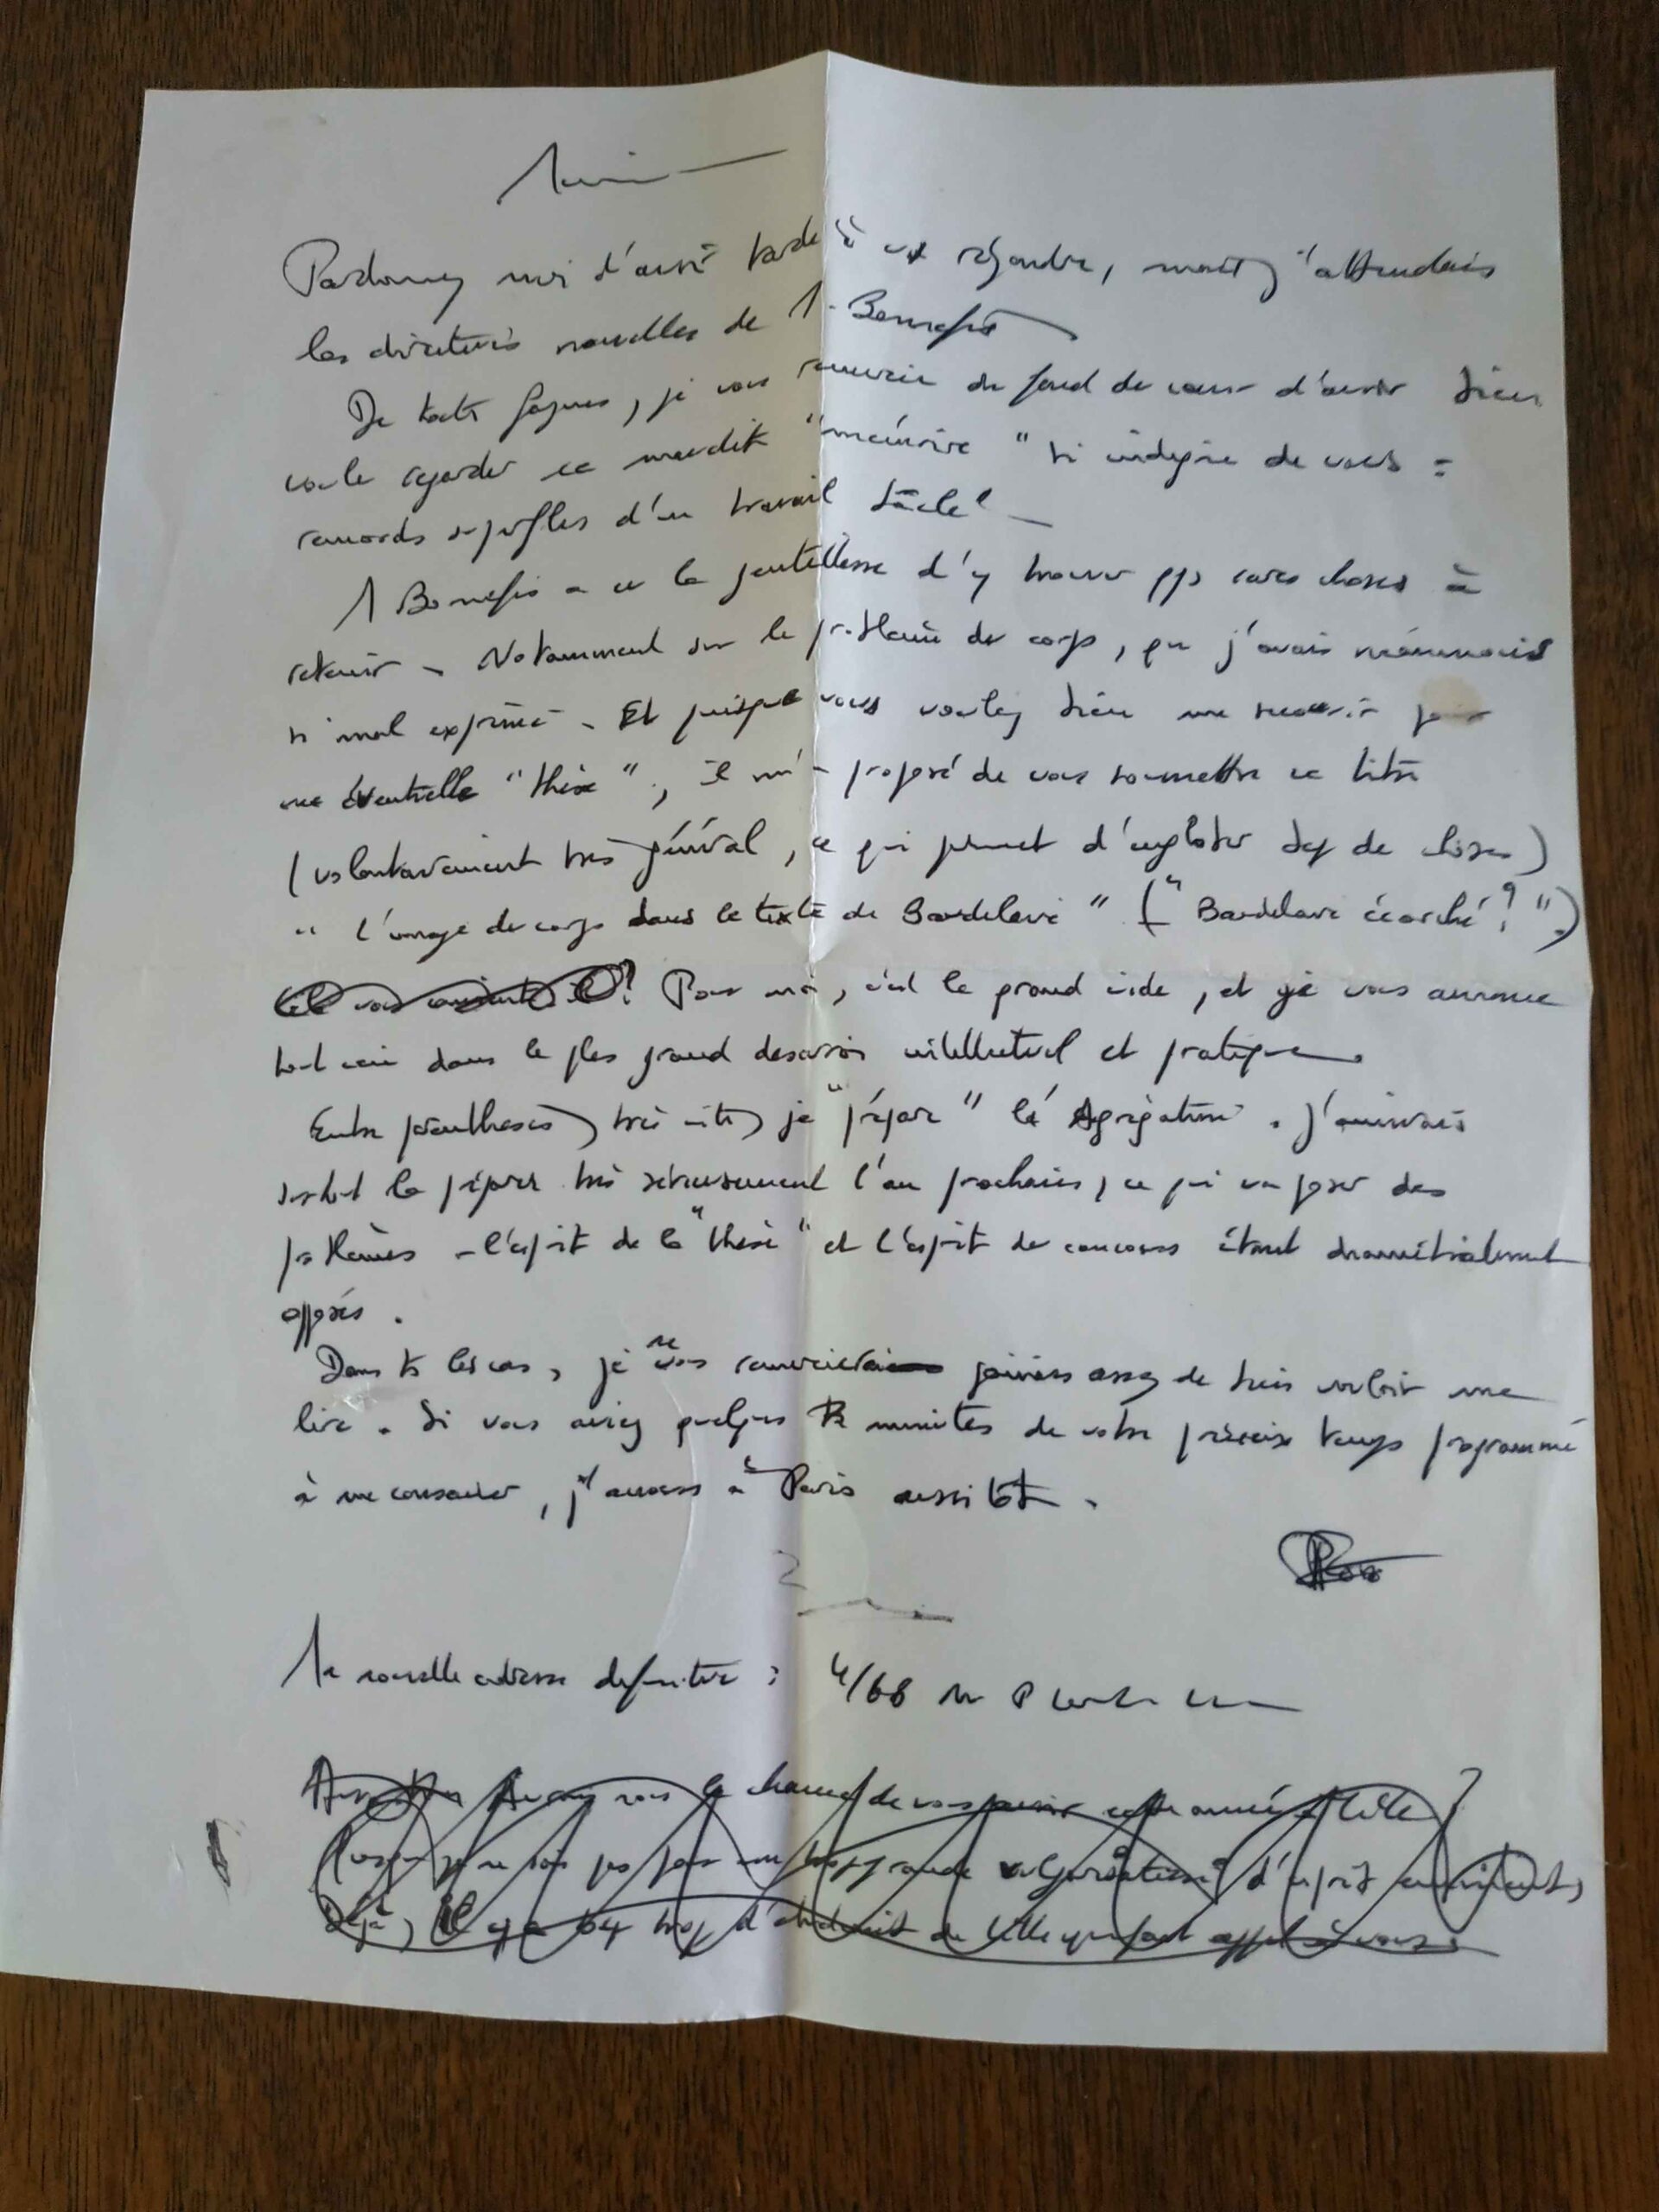 Pardonnez moi d'avoir tardé à vs répondre, mais j'attendais
les directives nouvelles de M. Bonnefis
De toute façons, je vous remercie du fond du cœur d'avoir bien
voulu regarder ce maudit "mémoire" si indigne de vous =
remords superflus d'un travail bâclé -
M Bonnefis a eu la gentillesse d'y trouver qqs rares choses à
retenir - Notamment sur le problème du corps, que j'avais néanmoins
si mal exprimé - Et puisque vous voulez bien me recevoir pour
une éventuelle "thèse", il m'a proposé de vous soumettre ce titre
(volontairement très général, ce qui permet d'englober bcp de choses)
"L'image du corps dans le texte de Baudelaire" ("Baudelaire écorché?")
Pour moi, c'est le grand vide, et je vous annonce
tout ceci dans le plus grand désarroi intellectuel et pratique.
Entre parenthèses, très vite, je "prépare" l'Agrégation. J'aimerais
surtout la préparer très sérieusement l'an prochain, ce qui va poser des
problèmes - l'esprit de la "thèse" et l'esprit du concours étant diamétralement
opposés.
Dans ts les cas, je ne vous remercierai jamais assez de bien vouloir me
lire. Si vous aviez quelques minutes de votre précieux temps programmé
à me consacrer, j'accours à Paris aussitôt.
Ma nouvelle adresse définitive : 4/68
la chance de vous cette année à Lille ?
grande d'esprit
Déjà, il y a trop d' de Lille qui font appel à vous